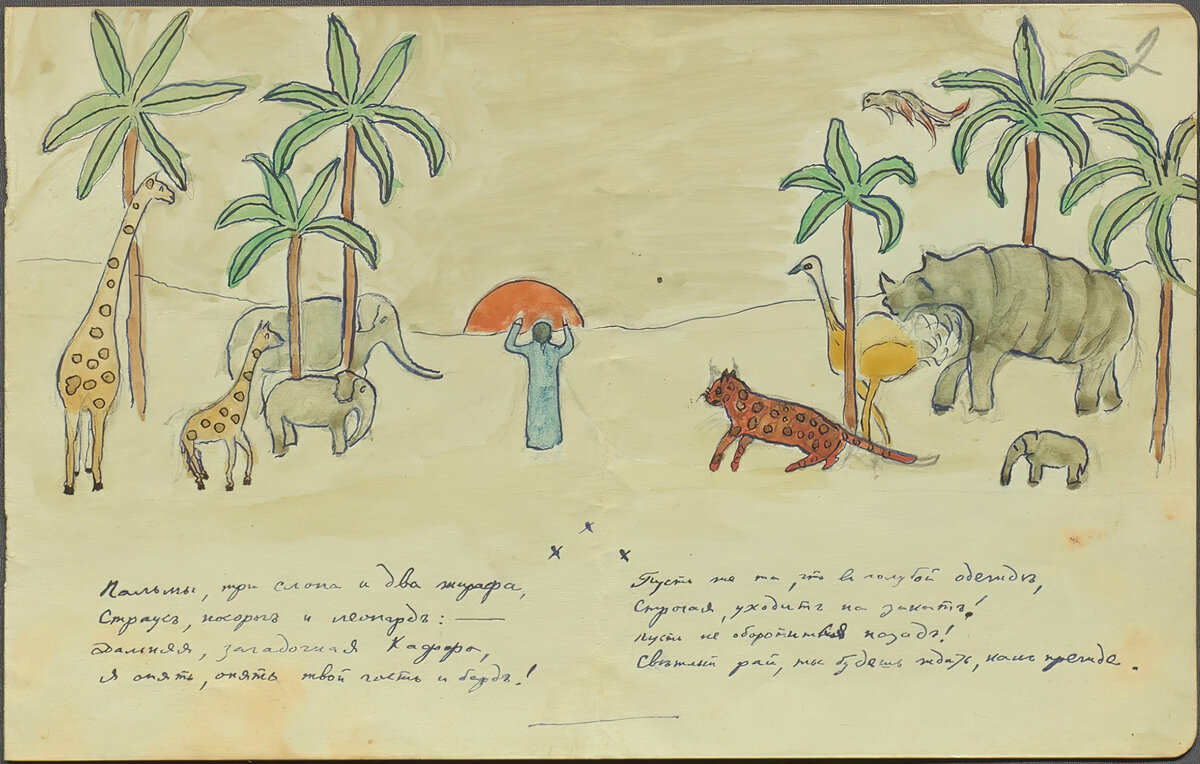 Пальмы, три слона и два жирафа,
Страусъ, носорогъ и леопардъ: —
Дальняя, загадочная Каффа,
Я опять, опять твой гость и бардъ!
Пусть же та, что въ голубой одеждѣ,
Строгая, уходитъ на закатъ!
Пусть не оборотится назадъ!
Свѣтлый рай, ты будешь ждать, какъ прежде.